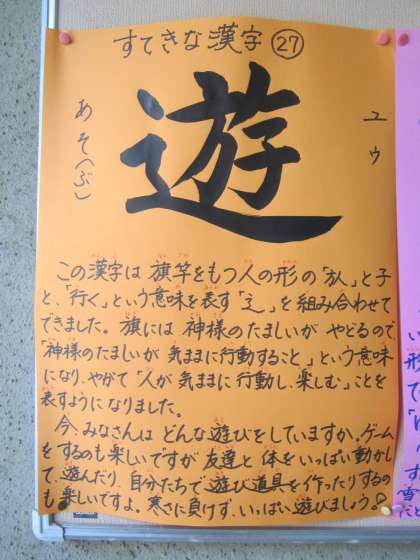 すてきな漢字 27
遊
ユウ
あそ(ぶ)
この漢字は 旗竿をもつ人の形の「㫃」と子
と、「行く」という意味を表す「辶」を組み合わせて
できました。旗には 神様のたましいが やどるので、
「神様のたましいが 気ままに行動すること」という意味
になり、やがて「人が気ままに行動し、楽しむ」ことを
表すようになりました。
今、みなさんは どんな遊びをしていますか。ゲーム
をするのも楽しいですが 友達と 体をいっぱい動かし
て、遊んだり、自分たちで 遊び道具を作ったりするの
も楽しいですよ。寒さに負けず、いっぱい 遊びましょう。